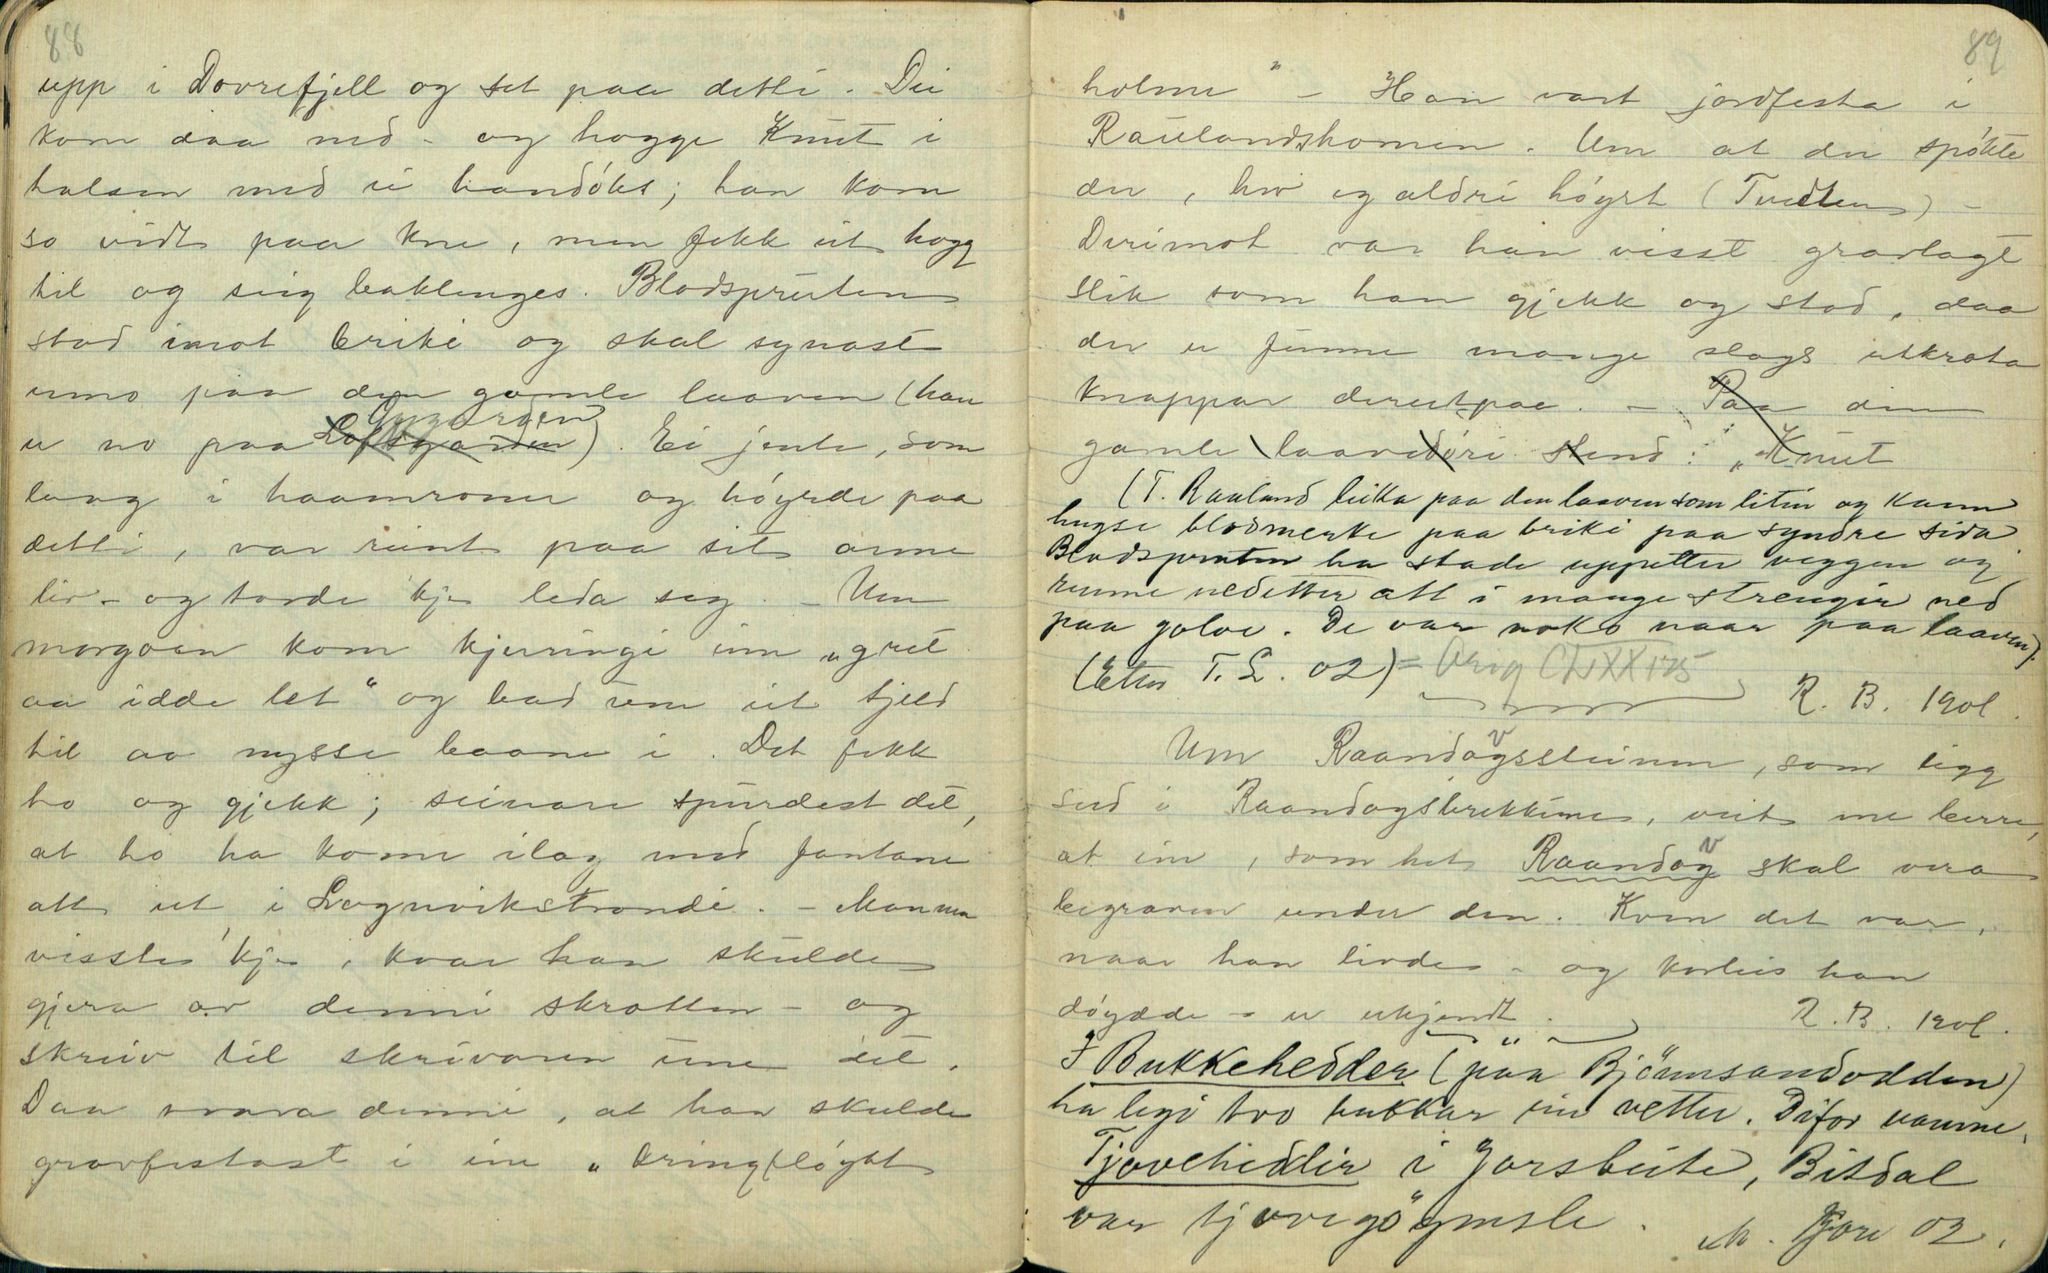 88
upp i Dovrefjell og set paa detti. Dei
kom daa ned - og hogge Knut i
halsen med ei handøks; han kom
so vidt paa kne, men fekk eit hogg
til og seig baklenges. Blodspruten
stod imot briki og skal synast
enno paa den gamle laaven (han
er no paa Loftsgarden). Ei jente, som
laag i haamrome og høyrde paa
detti, var reint paa sit arme
liv - og torde kje leda seg. - Um
morgoen kom kjeringi inn "gret
aa idde let" og bad um eit fjeld
til aa nysse baane i. Det fekk
ho og gjekk; seinare spurdest det,
at ho ha kome ilag med fantane
att ut i Lognvikstrondi. - Mannen
visste kje, kvar han skulde
gjera av denni skrotten - og
skreiv til skrivaren um det.
Daa svara denni, at han skulde
gravfestast i ein "kringfløytt
89
holme" - Han vart jordfesta i
Raulandshomen. Um at der spøkte
der, hev eg aldri høyrt (Tvedten) -
Derimot var han visst gravlagt
slik som han gjekk og stod, daa
der er funne mange slags utkrota
knappar derutpaa. - Paa den
gamle laavedøri stend: "Knut
(T. Rauland leika paa den laaven som liten og kann
hugse blodmerke paa briki paa syndre sida.
Blodspruten ha stade uppetter veggen og
runne nedetter att i mange strengir ned
paa golve. De var noko naar paa laaven).
(Etter T. L. 02) = Orig CLXXI 175
R. B. 1901.
Um Raandogssteinen, som ligg
sud i Raandogsbrekkune, veit me berre,
at ein, som het Raandog skal vera
begraven under den. Kven det var,
naar han livde - og korleis han
døydde - er ukjendt.
R. B. 1901.
I Bukkehedder (paa Björnsandodden)
ha legi tvo bukkar ein vetter. Difor namne.
Tjovehiddir i Jorsbeite, Bitdal
var tjovegöymsle.
M. Bjore 02.